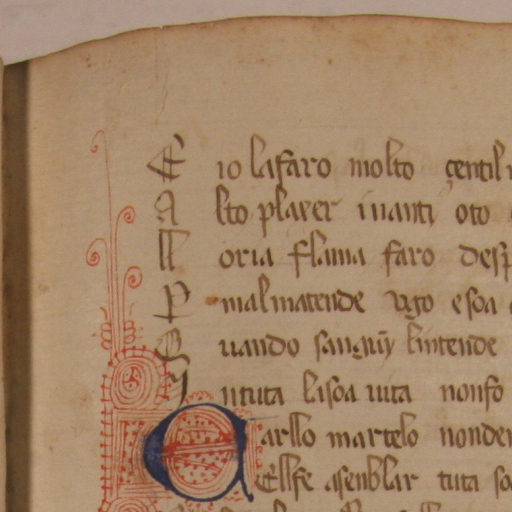 E io lafaro molto çentil
A lto plaxer inanti oto
M oria flama faro desp
P mal matende ugo esoa
Q uando sanguiȷ lintende
I ntuta lisoa uita nonfo
C arllo martelo nonde
Ellfe asenblar tuta so